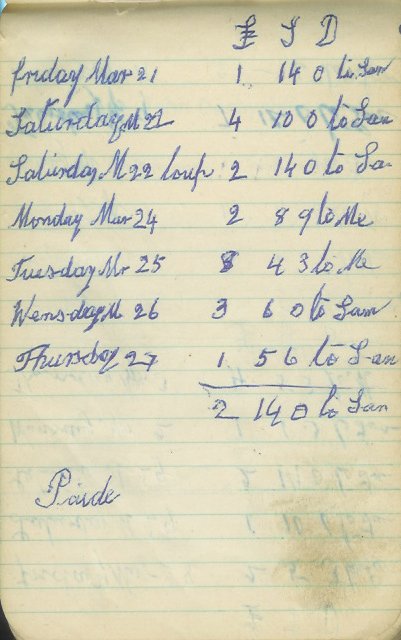 £ S D
Friday Mar 21 1 14 0 to Sam
Saturday M 22 4 10 0 to Sam
Saturday M 22 2 14 0 to Sa
Monday Mar 24 2 8 9 to Me
Tuesday Mr 25 8 4 3 to Me
Wensday M 26 3 6 0 to Sam
Thursday 27 1 5 6 to Sam
2 14 0 to Sam
Paide